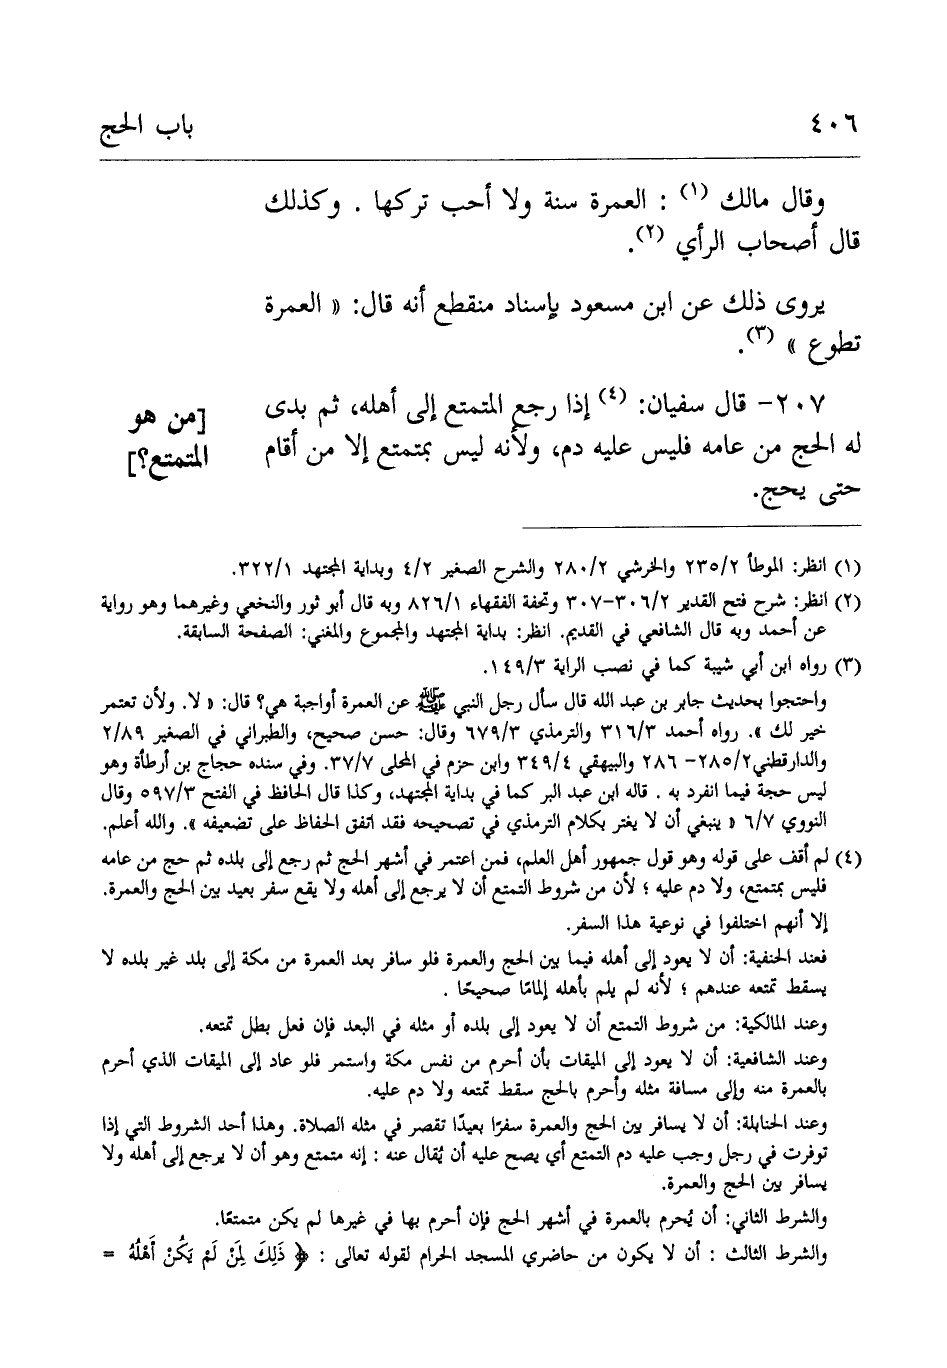 ٤٠٦ باب الحج
وقال مالك (١) : العمرة سنة ولا أحب تركها . وكذلك
قال أصحاب الرأي (٢).
يروى ذلك عن ابن مسعود بإسناد منقطع أنه قال: « العمرة
تطوع » (٣).
٢٠٧- قال سفيان: (٤) إذا رجع المتمتع إلى أهله، ثم بدى
له الحج من عامه فليس عليه دم، ولأنه ليس بمتمتع إلا من أقام
حتى يحج.
[من هو
المتمتع؟]
(١) انظر: الموطأ ٢٣٥/٢ والخرشي ٢٨٠/٢ والشرح الصغير ٤/٢ وبداية المجتهد ٣٢٢/١.
(٢) انظر: شرح فتح القدير ٣٠٦/٢-٣٠٧ وتحفة الفقهاء ٨٢٦/١ وبه قال أبو ثور والنخعي وغيرهما وهو رواية
عن أحمد وبه قال الشافعي في القديم. انظر: بداية المجتهد والمجموع والمغني: الصفحة السابقة.
(٣) رواه ابن أبي شيبة كما في نصب الراية ١٤٩/٣.
واحتجوا بحديث جابر بن عبد الله قال سأل رجل النبي ﷺ عن العمرة أواجبة هي؟ قال: « لا. ولأن تعتمر
خير لك ». رواه أحمد ٣١٦/٣ والترمذي ٦٧٩/٣ وقال: حسن صحيح، والطبراني في الصغير ٢/٨٩
والدارقطني٢٨٥/٢- ٢٨٦ والبيهقي ٣٤٩/٤ وابن حزم في المحلى ٣٧/٧. وفي سنده حجاج بن أرطأة وهو
ليس حجة فيما انفرد به . قاله ابن عبد البر كما في بداية المجتهد، وكذا قال الحافظ في الفتح ٥٩٧/٣ وقال
النووي ٦/٧ « ينبغي أن لا يغتر بكلام الترمذي في تصحيحه فقد اتفق الحفاظ على تضعيفه ». والله أعلم.
(٤) لم أقف على قوله وهو قول جمهور أهل العلم، فمن اعتمر في أشهر الحج ثم رجع إلى بلده ثم حج من عامه
فليس بمتمتع، ولا دم عليه ؛ لأن من شروط التمتع أن لا يرجع إلى أهله ولا يقع سفر بعيد بين الحج والعمرة.
إلا أنهم اختلفوا في نوعية هذا السفر.
فعند الحنفية: أن لا يعود إلى أهله فيما بين الحج والعمرة فلو سافر بعد العمرة من مكة إلى بلد غير بلده لا
يسقط تمتعه عندهم ؛ لأنه لم يلم بأهله إلمامًا صحيحًا .
وعند المالكية: من شروط التمتع أن لا يعود إلى بلده أو مثله في البعد فإن فعل بطل تمتعه.
وعند الشافعية: أن لا يعود إلى الميقات بأن أحرم من نفس مكة واستمر فلو عاد إلى الميقات الذي أحرم
بالعمرة منه وإلى مسافة مثله وأحرم بالحج سقط تمتعه ولا دم عليه.
وعند الحنابلة: أن لا يسافر بين الحج والعمرة سفرًا بعيدًا تقصر في مثله الصلاة. وهذا أحد الشروط التي إذا
توفرت في رجل وجب عليه دم التمتع أي يصح عليه أن يُقال عنه : إنه متمتع وهو أن لا يرجع إلى أهله ولا
يسافر بين الحج والعمرة.
والشرط الثاني: أن يُحرم بالعمرة في أشهر الحج فإن أحرم بها في غيرها لم يكن متمتعًا.
والشرط الثالث : أن لا يكون من حاضري المسجد الحرام لقوله تعالى : ﴿ ذَلِكَ لِمَنْ لَمْ يَكُنْ أَهْلُهُ =